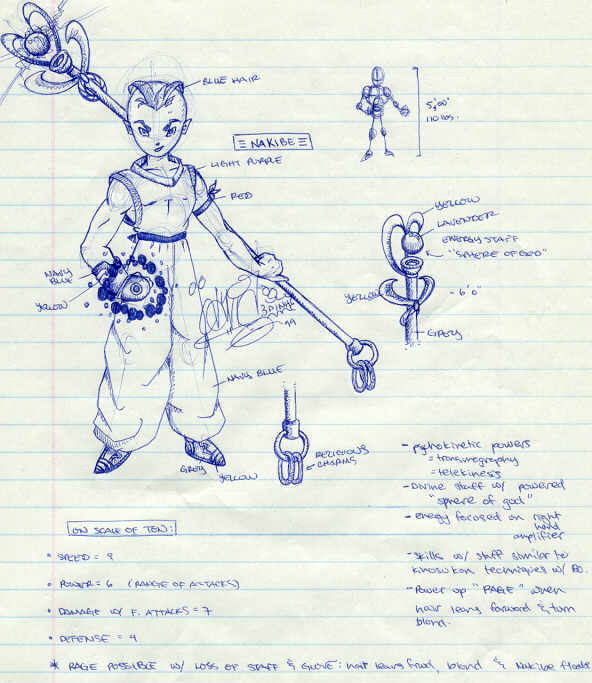 BLUE HAIR
≡ NAKIBE ≡
LIGHT PURPLE
RED
NAVY
BLUE
YELLOW
NAVY BLUE
GREY
YELLOW
RELIGIOUS
CHARMS
99
5'00"
110 lbs.
YELLOW
LAVENDER
ENERGY STAFF
"SPHERE OF GOD"
YELLOW
- 6'0"
GREY
- psychokinetic powers
= transmography
= telekiness
- Divine staff w/ powered
"sphere of god"
- energy focused on right
hand
amplifier
- skills w/ staff similar to
techniques w/ BO.
- Power up "RAGE" when
hair leans forward & turn
blond.
ON SCALE OF TEN:
• SPEED =
• POWER = 6 (RANGE OF ATTACKS)
• DAMAGE W/ F. ATTACKS = 7
• DEFENSE = 4
* RAGE POSSIBLE W/ LOSS OF STAFF & GLOVE: hair leans frwd, blond & Nakibe floats